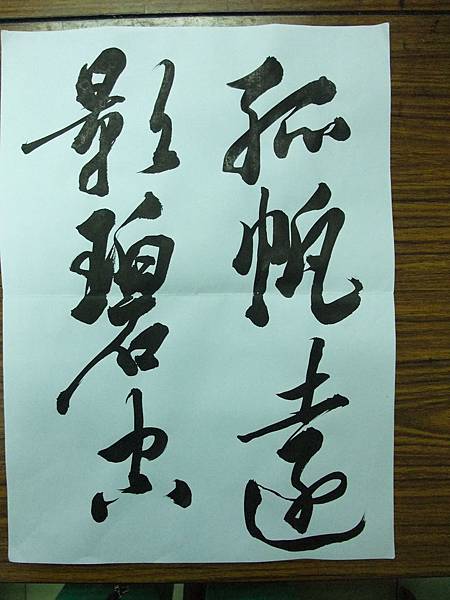 孤帆遠
影碧空